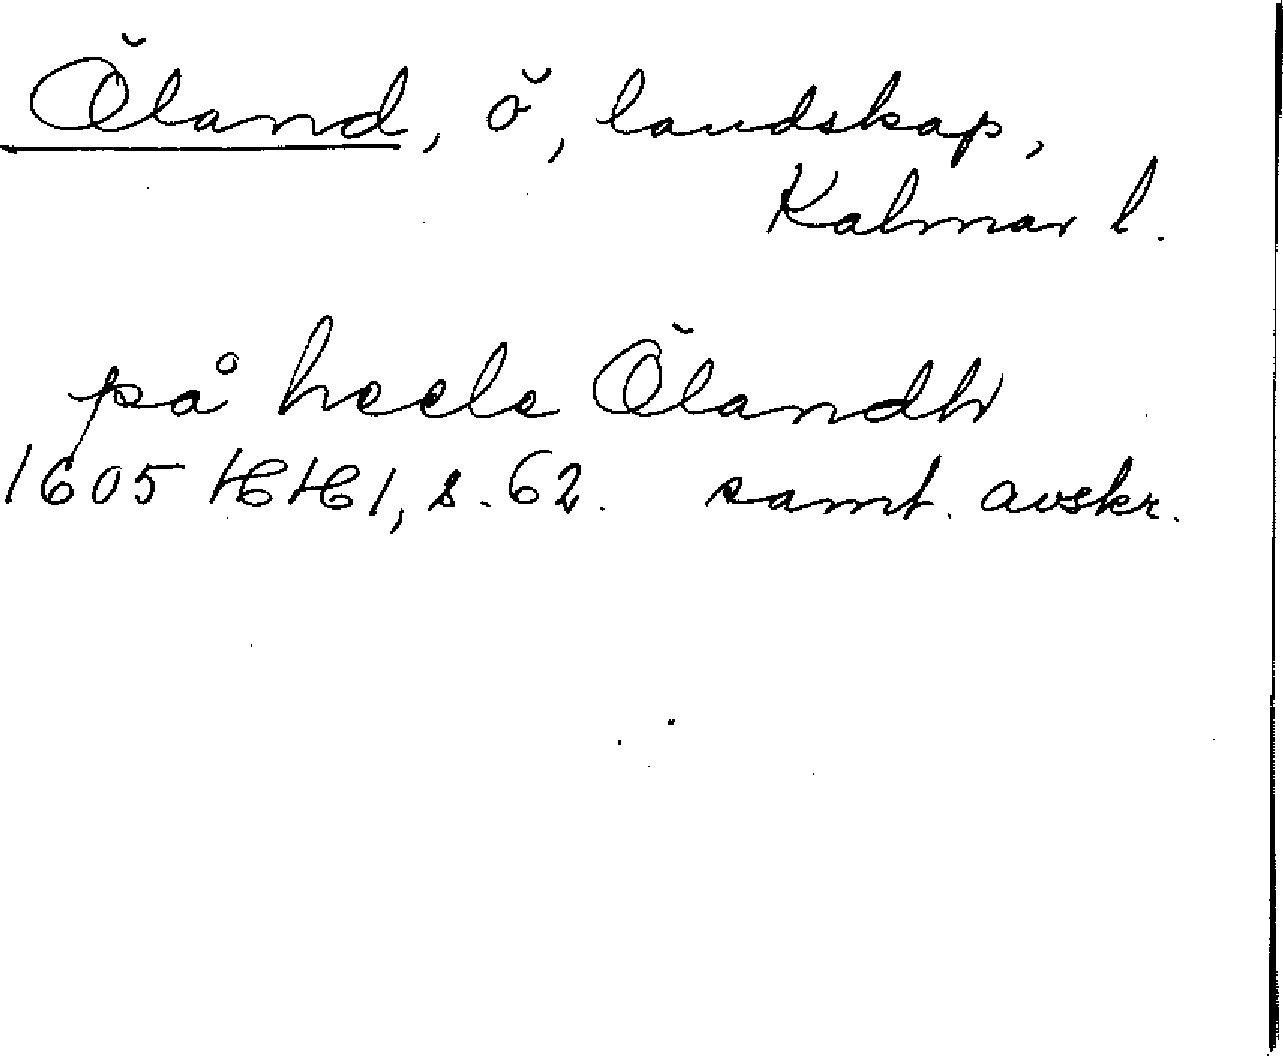 Öland, ö, landskap,
Kalmar l.
på heele Ölandh
1605 HH 1, s. 62. samt. avskr.